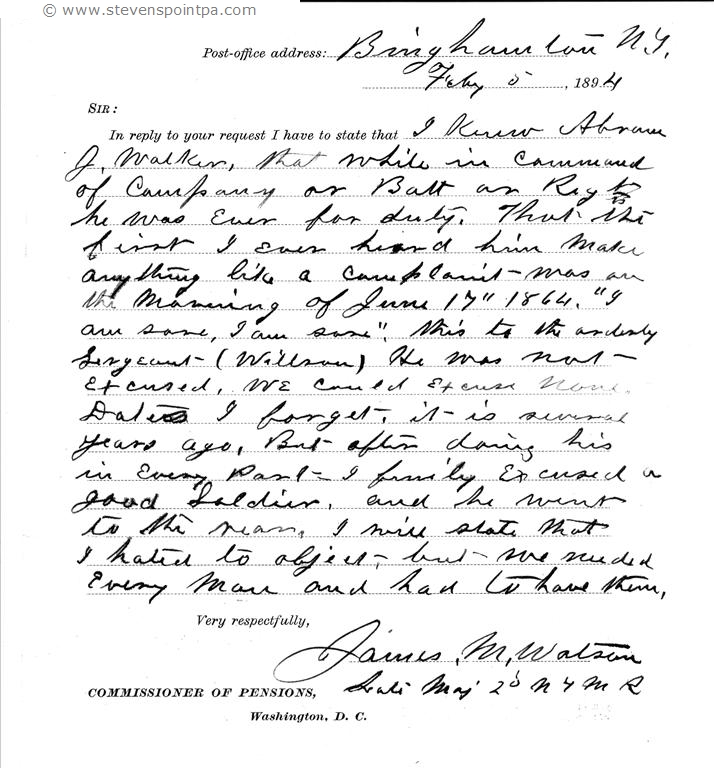 © www.stevenspointpa.com
Post-office address: Binghamton N.Y.
Feby 5, 1894
SIR:
In reply to your request I have to state that I Knew Abram
J. Walker, that while in command
of Company or Batt or Regt
he was Ever for duty. That the
first I ever heard him Make
anything like a complaint was on
the Morning of June 17" 1864. "I
am sore, I am sore". this to the orderly
Sergeant (Willson) He was not
Excused, WE Could Excuse None.
Dates I forget, it is several
years ago, But after doing his
in Every Part I finily Excused a
good Soldier, and he went
to the rear, I will state that
I hated to object, but we needed
Every Man and had to have them,
Very respectfully,
James, M, Watson
COMMISSIONER OF PENSIONS, Late Maj 2d N Y M R
Washington, D. C.